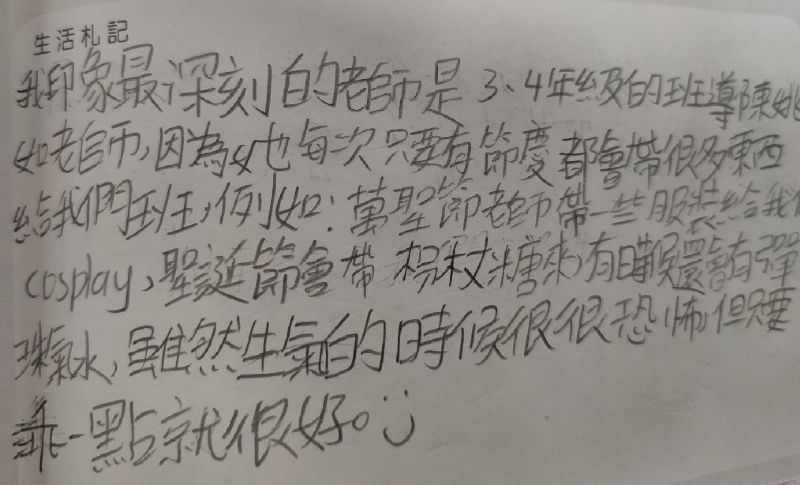 生活札記
我印象最深刻的老師是3、4年級的班導陳姚
如老師,因為她每次只要有節慶都會帶很多東西
給我們班,例如:萬聖節老師帶一些服裝給我們
cosplay、聖誕節會帶柺杖糖來,有時候還會有彈
珠氣水,雖然生氣的時候很很恐怖,但只要
乖一點就很好。